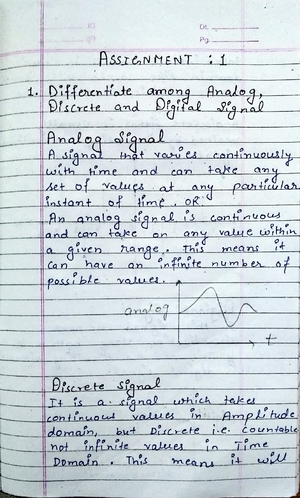 Dt.
Pg.
ASSIGNMENT : 1
1. Differentiate among Analog,
Discrete and Digital Signal
Analog Signal
A signal that varies continuously
with time and can take any
set of values at any particular
instant of time. OR
An analog signal is continuous
and can take on any value within
a given range. This means it
can have an infinite number of
possible values.
analog
t
Discrete Signal
It is a signal which takes
continuous values in Amplitude
domain, but Discrete i.e. countable
not infinite values in Time
Domain. This means it will